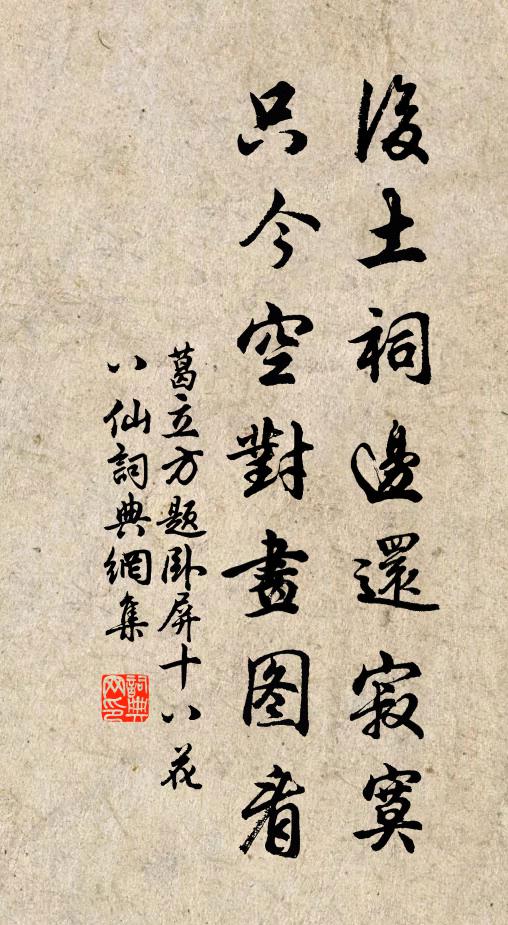 後土祠邊還寂寞
只今空對畫图看
葛立方題卧屏十八花
八仙詞典網集
詞典
网印